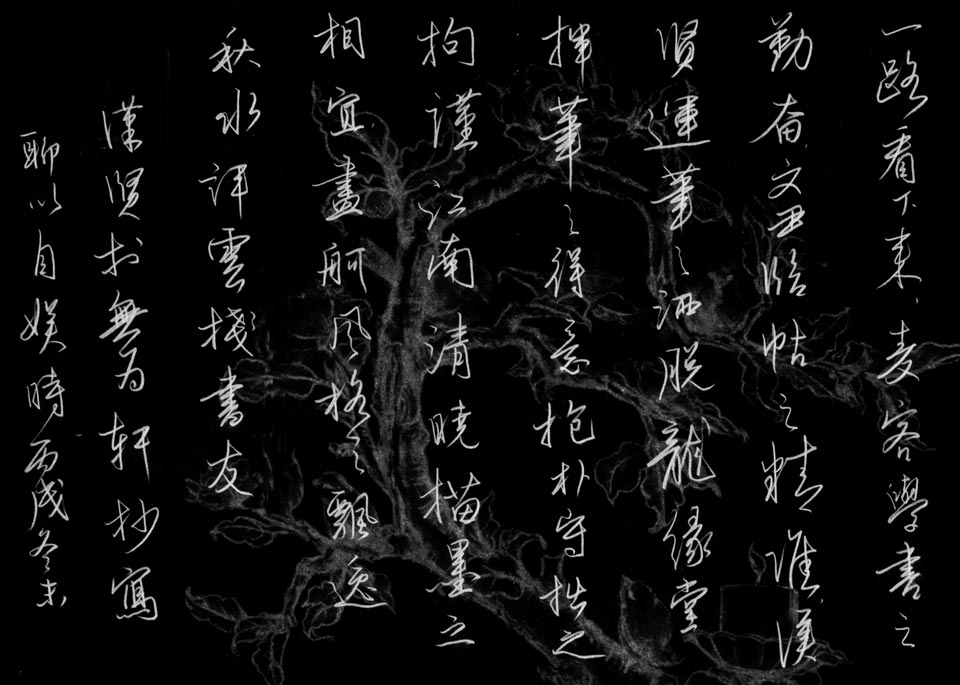 一路看下来、麦客學書之
勤奋、文丑临帖之精准、漢
賢運筆之洒脱、龍缘堂
揮筆之得意、抱朴守拙之
拘謹、江南清曉描墨之
相宜、畫舸风格之飄逸
秋水評雲棧書友
漢賢于無为轩抄寫
聊以自娱時丙戌冬末